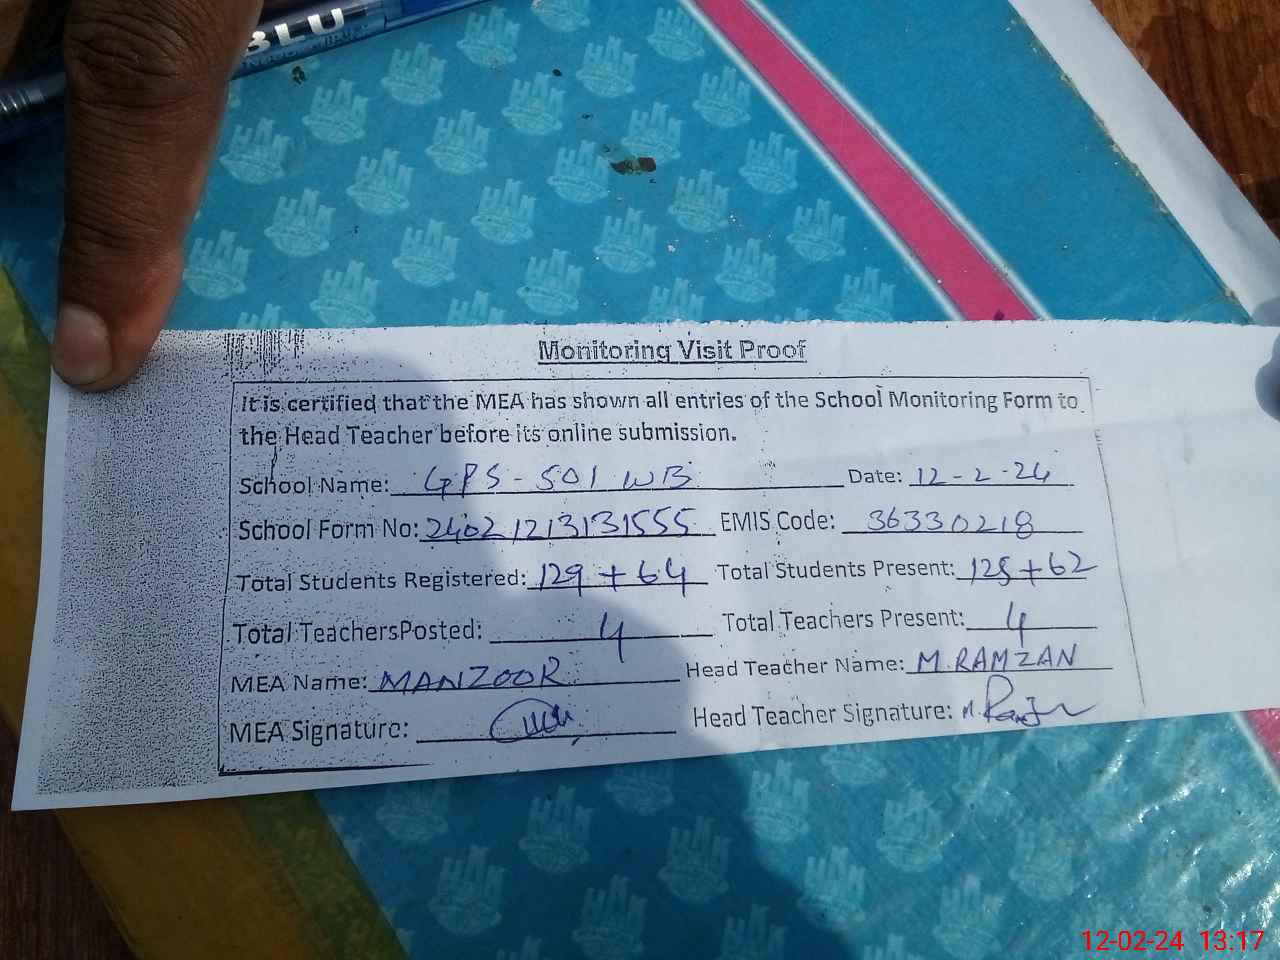 BLU
Monitoring Visit Proof
It is certified that the MEA has shown all entries of the School Monitoring Form to
the Head Teacher before its online submission.
School Name: GPS-501 WB Date: 12-2-24
School Form No: 24021213131555 EMIS Code: 36330218
Total Students Registered: 129+64 Total Students Present: 125+62
Total TeachersPosted: 4 Total Teachers Present: 4
MEA Name: MANZOOR Head Teacher Name: M.RAMZAN
MEA Signature: Head Teacher Signature:
12-02-24 13:17